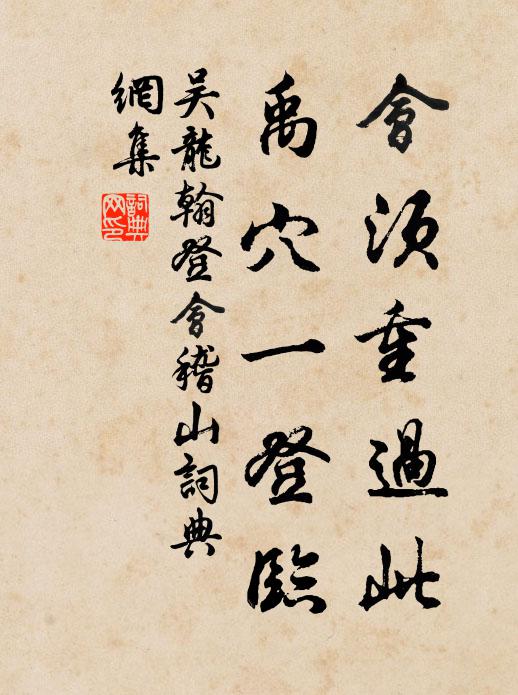 會須重過此
禹穴一登臨
吴龍翰登會稽山詞典
網集
詞典
网印